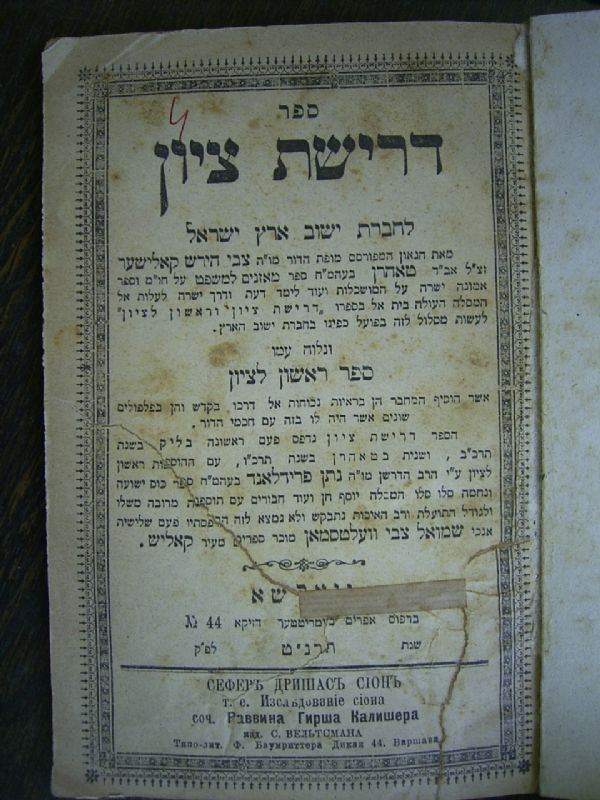 ספר
דרישת ציון
לחברת ישוב ארץ ישראל
מאת הגאון המפורסם מופת הדור מו״ה צבי הירש קאלישער
זצ״ל אב״ד טאהרן בעהמ״ח ספר מאזנים למשפט על חו״מ וספר
אמונה ישרה על המושכלות ועוד לימד דעת ודרך ישרה לעלות אל
המסלה העולה בית אל בספרו „דרישת ציון״ וראשון לציון״
לעשות מסלול לזה בפועל כפינו בחברת ישוב הארץ.
ונלוה עמו
ספר ראשון לציון
אשר הוסיף המחבר הן בראיות נכוחות אל דרכו, בקדש והן בפלפולים
שונים אשר היה לו בזה עם חכמי הדור.
הספר דרישת ציון נדפס פעם ראשונה בליק בשנת
תרכ״ב, ושנית בטאהרן בשנת תרכ״ו, עם ההוספות ראשון
לציון ע״י הרב הדרשן מו״ה נתן פרידלאנד בעהמ״ח ספר כוס ישועה
ונחמה סלו סלו המסלה יוסף חן ועוד חבורים עם תוספת מרובה משלו
ולגודל התועלת ורב האיכות נתבקש ולא נמצא לזה הדפסתיו פעם שלישית
אנכי שמואל צבי וועלטסמאן מוכר ספרים מעיר קאליש.
בדפוס אפרים בוימריטטער דזיקא 44 №
שנת תרנ״ט לפ״ק
СЕФЕРЪ ДРИШАСЪ СІОНЪ
т. е. Изслѣдованіе сіона
соч. Раввина Гирша Калишера
изд. С. ВЕЛЬТСМАНА
Типо-лит. Ф. Баумриттера Дикая 44. Варшава